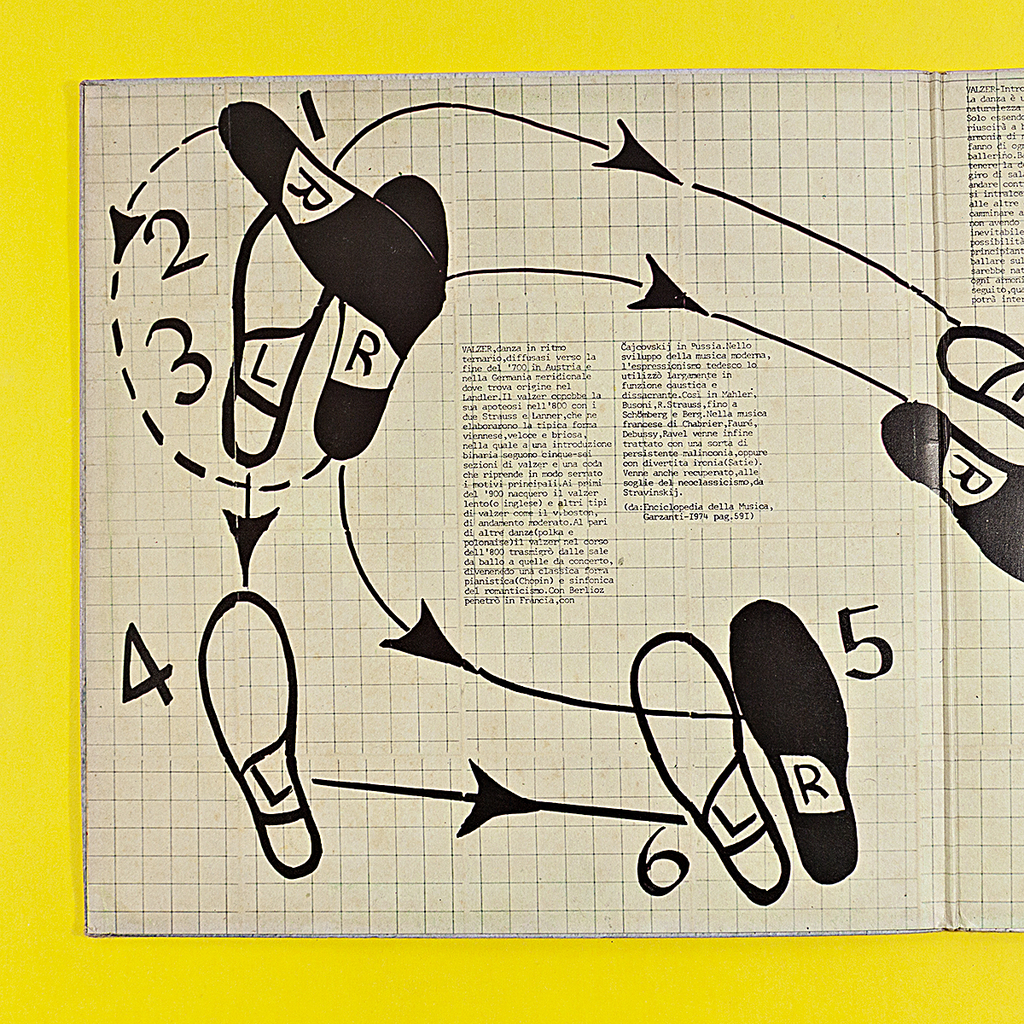 1
R
2
3
L
R
VALZER,danza in ritmo
ternario,diffusasi verso la
fine del '700,in Austria e
nella Germania meridionale
dove trova origine nel
Landler.Il valzer ebbe la
sua apoteosi nell'800 con i
due Strauss e Lanner,che ne
elaborarono la tipica forma
viennese,veloce e briosa,
nella quale a una introduzione
binaria seguono cinque-sei
sezioni di valzer e una coda
che riprende in modo serrato
i motivi principali.Ai primi
del '900 nacquero il valzer
lento(o inglese) e altri tipi
di valzer come il v.boston,
di andamento moderato.Al pari
di altre danze(polka e
polonaise)il valzer nel corso
dell'800 trasmigrò dalle sale
da ballo a quelle da concerto,
divenendo una classica forma
pianistica(Chopin) e sinfonica
del romanticismo.Con Berlioz
penetrò in Francia,con
Čajcovskij in Russia.Nello
sviluppo della musica moderna,
l'espressionismo tedesco lo
utilizzò largamente in
funzione caustica e
dissacrante.Così in Mahler,
Busoni,R.Strauss,fino a
Schömberg e Berg.Nella musica
francese di Chabrier,Fauré,
Debussy,Ravel venne infine
trattato con una sorta di
persistente malinconia,oppure
con divertita ironia(Satie).
Venne anche recuperato,alle
soglie del neoclassicismo,da
Stravinskij.
(da:Enciclopedia della Musica,
Garzanti-1974 pag.591)
VALZER-Intro
La danza è u
naturalezza
Solo essendo
riuscirà a
armonia di
fanno di ogn
ballerino.Ba
tenere la d
giro di sal
andare cont
si intralce
alle altre
camminare a
non avendo
inevitabile
possibilità
principiant
ballare sul
sarebbe nat
ogni armoni
seguito,qua
potrà inter
R
4
L
5
R
L
6